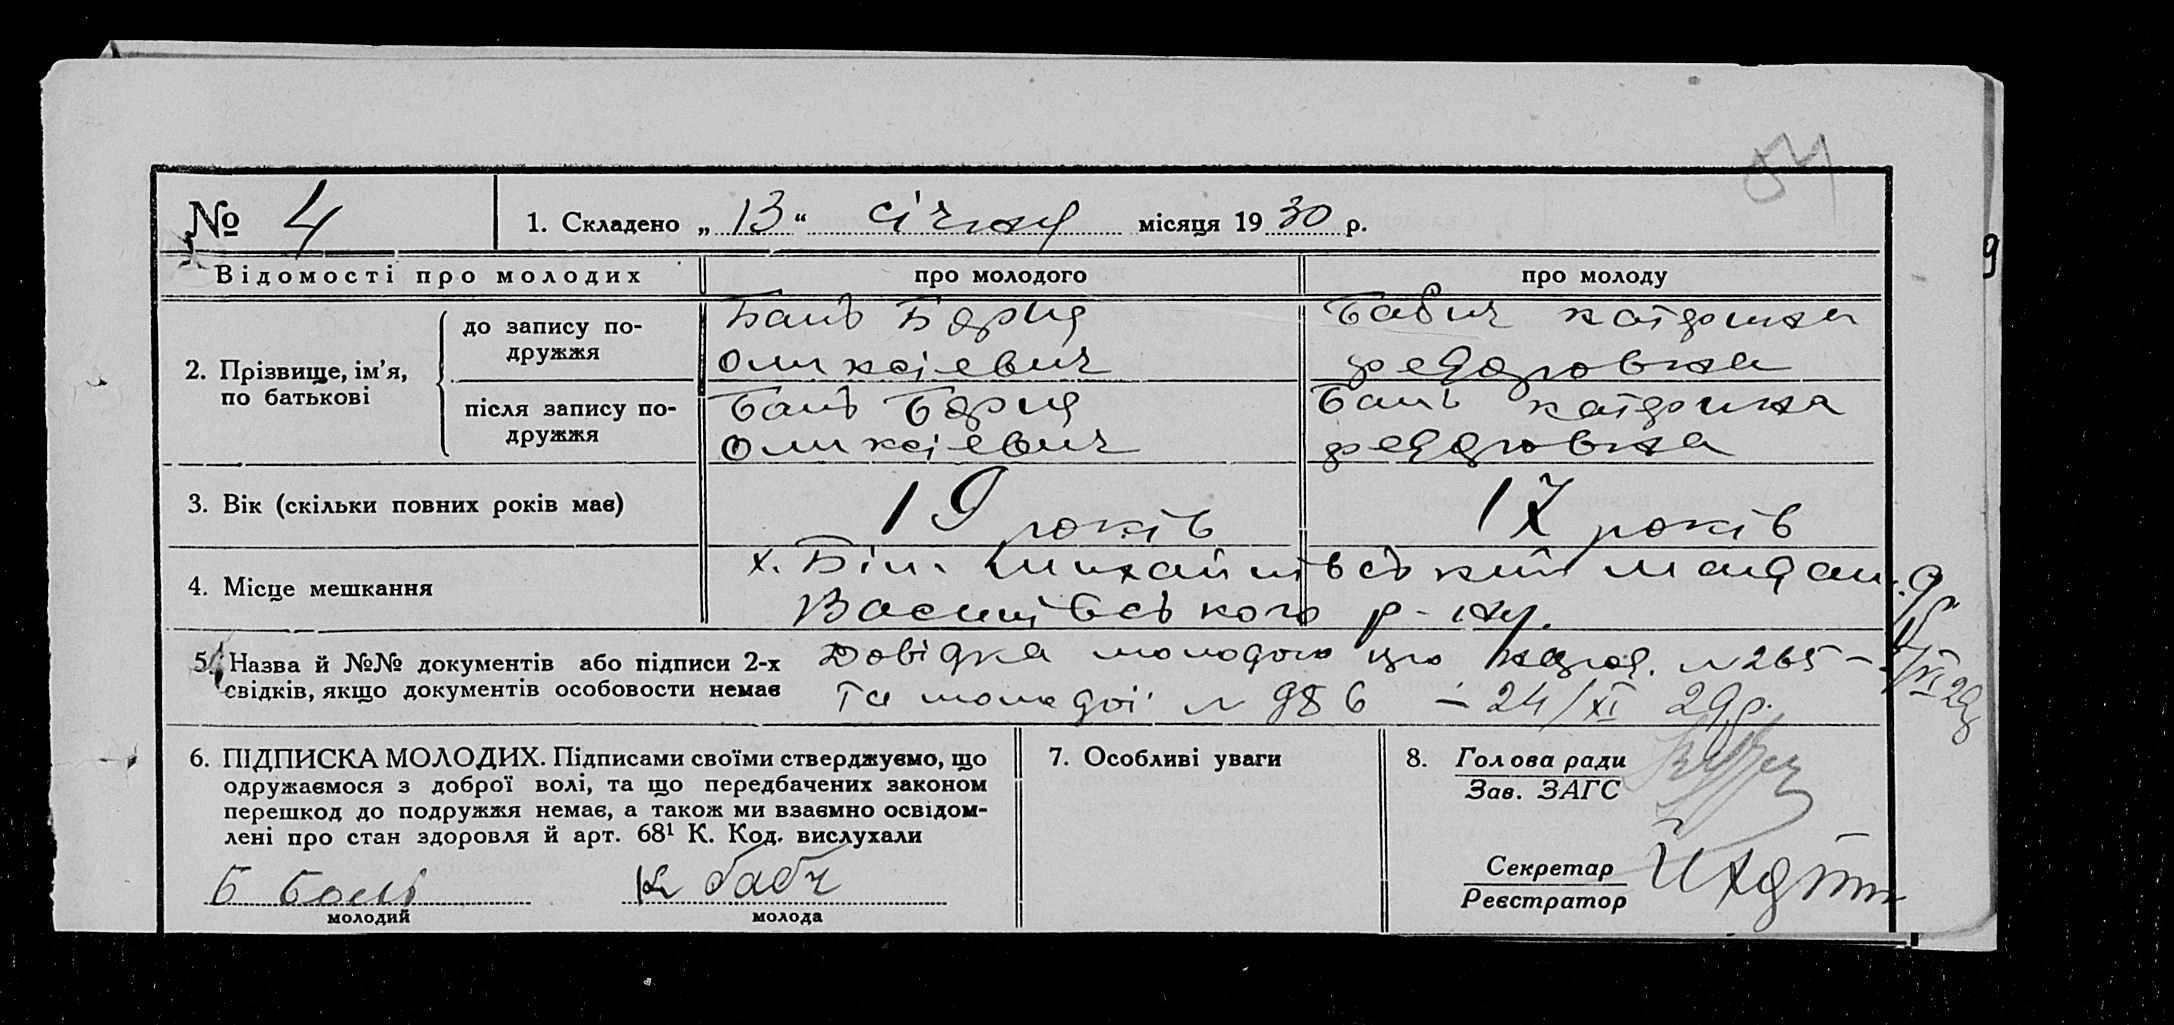 № 4
1. Складено „ 13 “ січня місяця 19 30 р.
Відомості про молодих
про молодого
про молоду
2. Прізвище, ім’я, по батькові
до запису по-
дружжя
Баль Борис
Оликсієвич
Бабич Катрина
Федоровна
після запису по-
дружжя
Баль Борис
Оликсієвич
Баль Катрина
Федоровна
3. Вік (скільки повних років має)
19 років
17 років
4. Місце мешкання
х. Біл. Михайлівський
Василівського р-ну.
5. Назва й №№ документів або підписи 2-х
свідків, якщо документів особовости немає
Довідка молодого про № 265 –
та молодої № 986 – 24/XI 29р.
6. ПІДПИСКА МОЛОДИХ. Підписами своїми стверджуємо, що
одружаємося з доброї волі, та що передбачених законом
перешкод до подружжя немає, а також ми взаємно освідом-
лені про стан здоровля й арт. 68¹ К. Код. вислухали
Б Баль
молодий
К Бабч
молода
7. Особливі уваги
8. Голова ради
Зав. ЗАГС
Секретар
Реєстратор